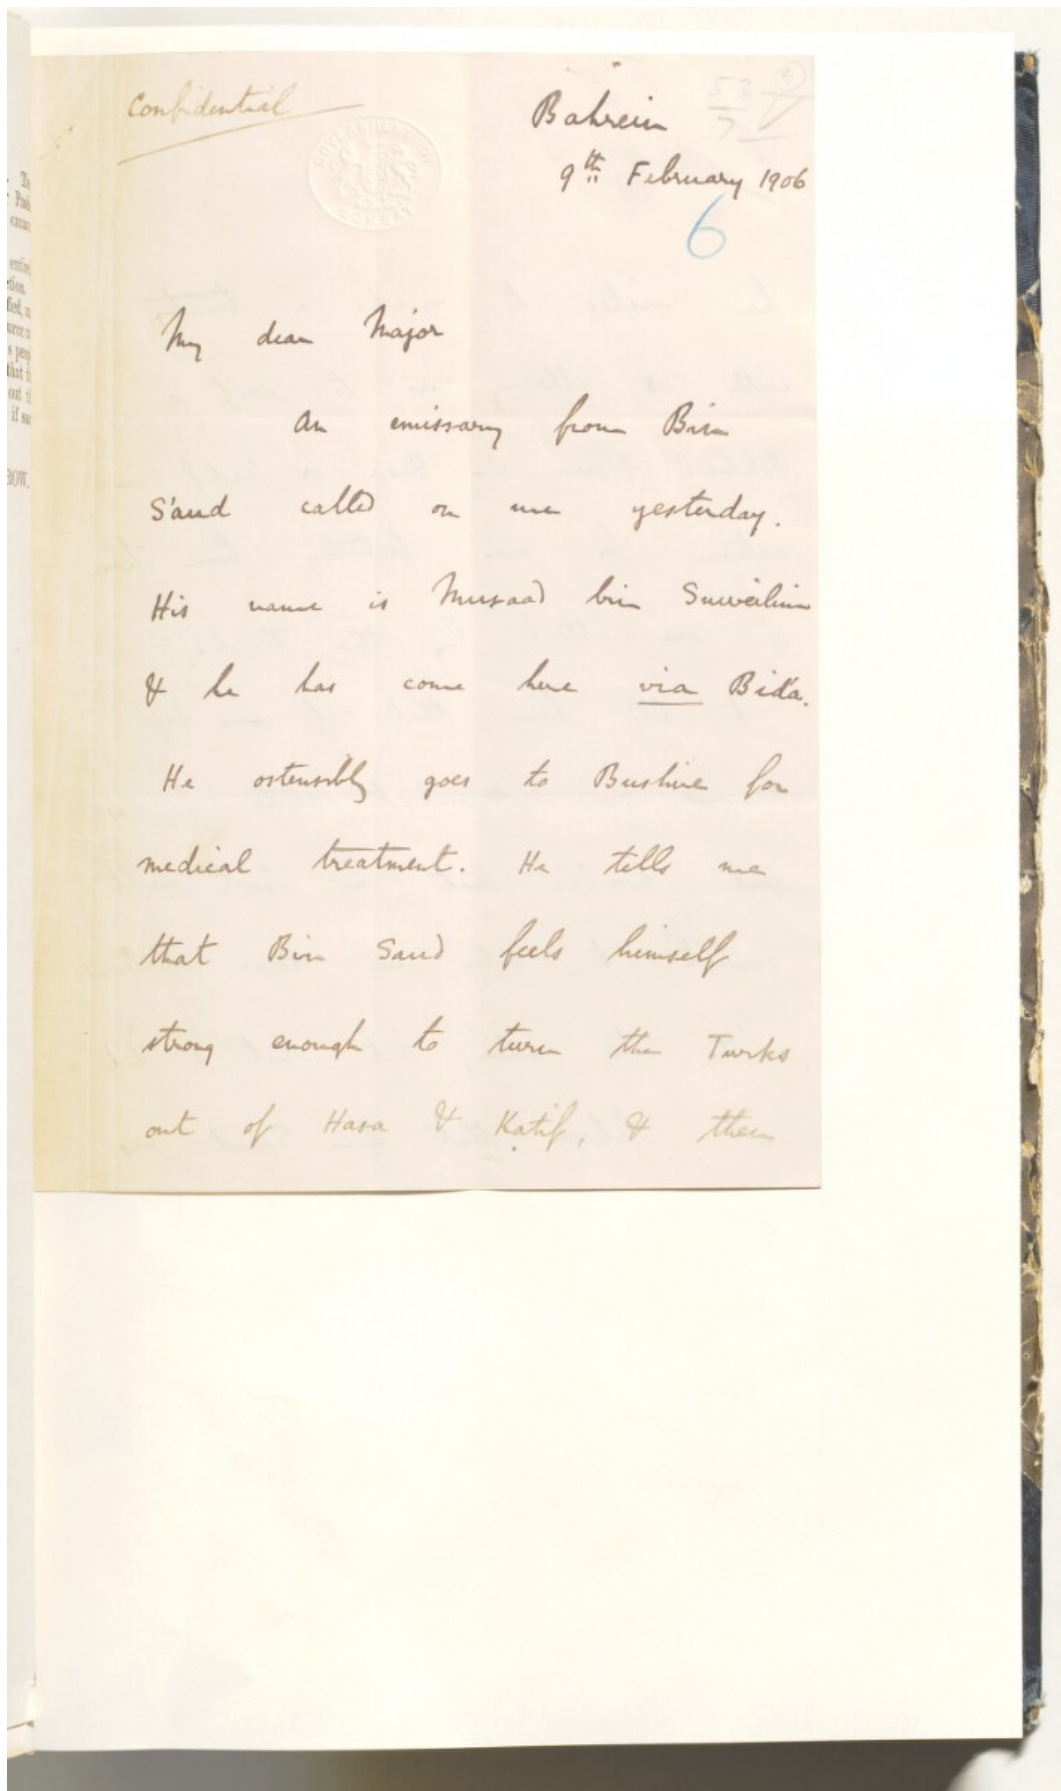 Confidential
Bahrein
53
7
9th February 1906
6
GOVERNMENT OF
BOMBAY
My dear Major
An emissary from Bin
S'aud called on me yesterday.
His name is Musaad bin Suweilim
& he has come here via Bida.
He ostensibly goes to Bushire for
medical treatment. He tells me
that Bin Saud feels himself
strong enough to turn the Turks
out of Hasa & Katif, & then